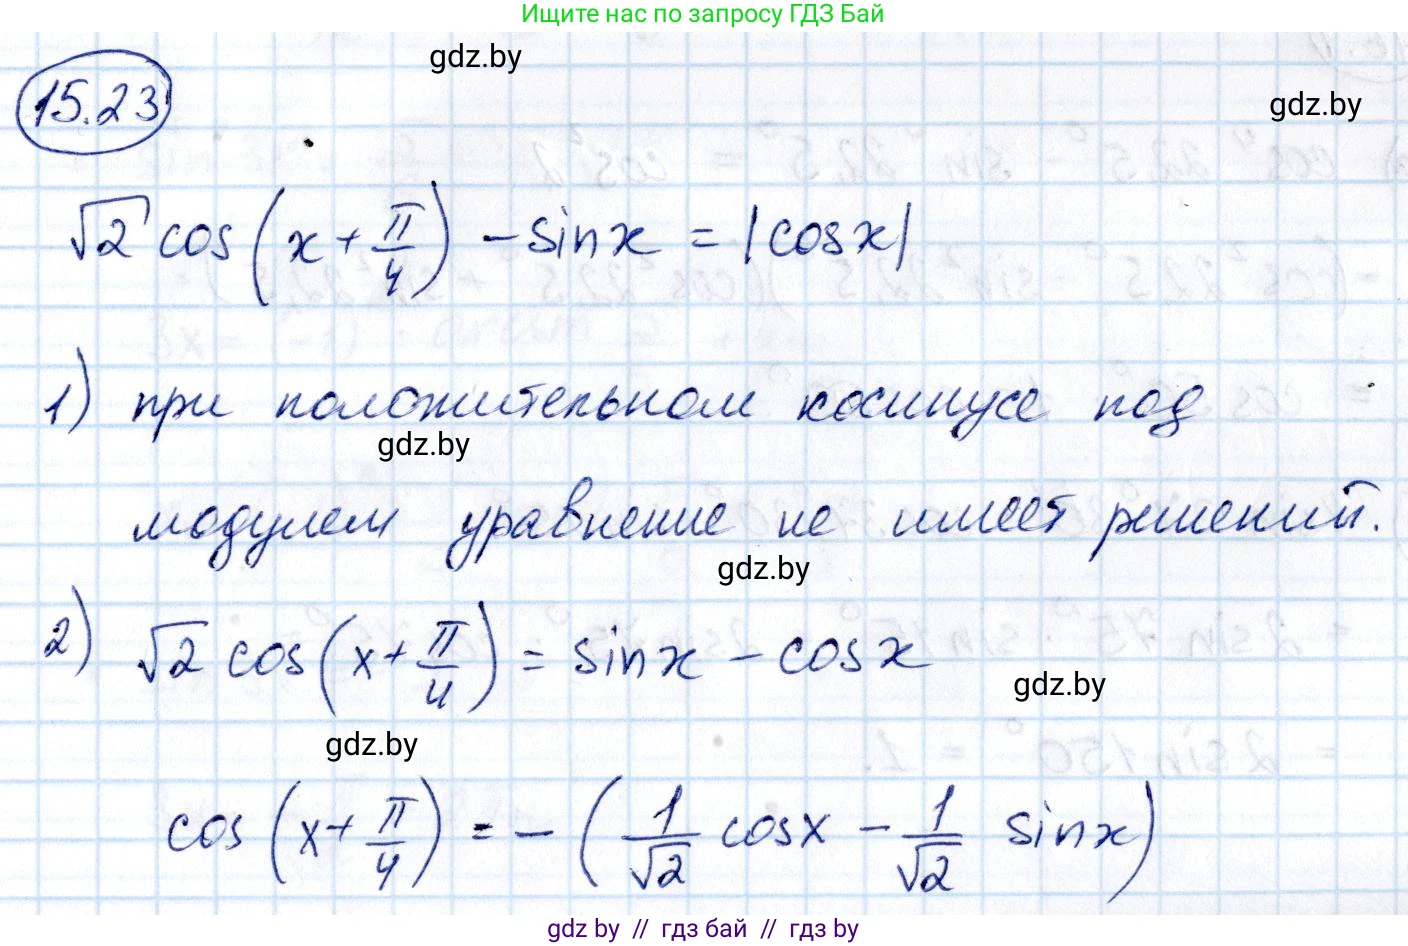 Ищите нас по запросу ГДЗ Бай
gdz.by
15.23
gdz.by
√2 cos(x + π/4) - sinx = |cosx|
1) при положительном косинусе под
gdz.by
модулем уравнение не имеет решений.
gdz.by
2) √2 cos(x + π/4) = sinx - cosx
gdz.by
gdz.by
cos(x + π/4) = - (1/√2 cosx - 1/√2 sinx)
gdz.by // гдз бай // гдз by